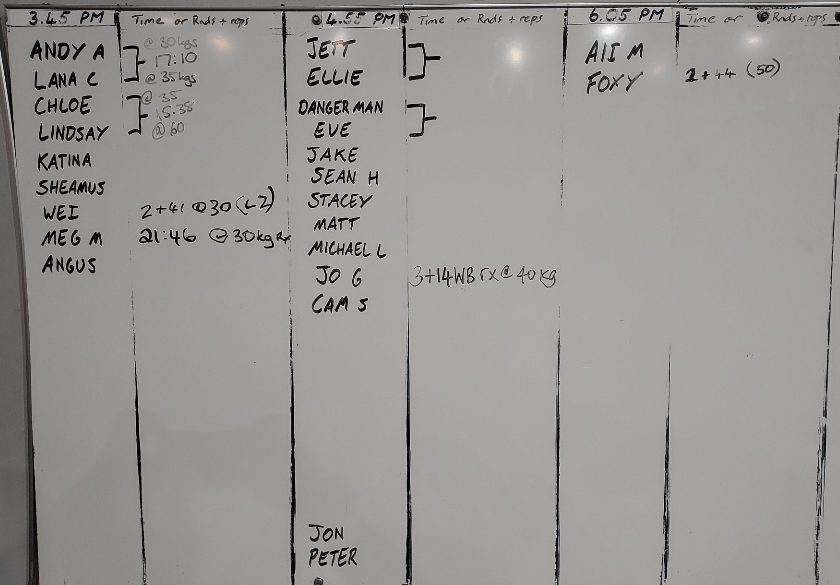 3.45 PM
Time or Rnds + reps
ANDY A
@ 30kgs
17:10
LANA C
@ 35kgs
CHLOE
@ 35
15:38
LINDSAY
@ 60
KATINA
SHEAMUS
WEI
2+41 @30 (L2)
MEG M
21:46 @ 30kg Rx
ANGUS
4.55 PM
Time or Rnds + reps
JETT
ELLIE
DANGERMAN
EVE
JAKE
SEAN H
STACEY
MATT
MICHAEL L
JO G
3+14WB rx @ 40kg
CAM S
JON
PETER
6.05 PM
Time or Rnds + reps
FOXY
+44 (50)